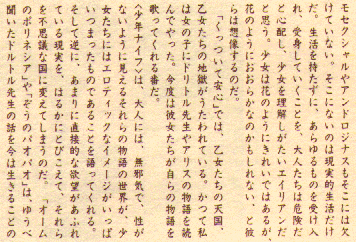 モセクシャルやアンドロジナスもそこには欠
けていない。そこにないのは現実的生活だけ
だ。生活を持たずに、あらゆるものを受け入
れ、受身していくことを、大人たちは危険だ
と心配し、少女を理解しがたいエイリアンだ
と思う。少女は花のようにきれいではあるが、
花のようにおおらかなのかもしれない、と彼
らは想像するのだ。
「くっついて安心」では、乙女たちの天国、
乙女たちの地獄がうたわれている。かつて私
は女の子にドリトル先生やアリスの物語を読
んでやった。今度は彼女たちが自らの物語を
歌ってくれる番だ。
〈少年ナイフ〉、大人には、無邪気で、性が
ないように見えるそれらの物語の世界が、少
女たちにはエロティックなイメージがいっぱ
いつまったものであることを語ってくれる。
そして逆に、あまりに直接的な欲望があふれ
ている現実を、はるかにとびこえて、それら
を不思議な国に変えてしまうのだ。「オーム
のポリネシア」や「ぞうのパオパオ」は、ゆうべ
聞いたドルトル先生の話を今は生きることの